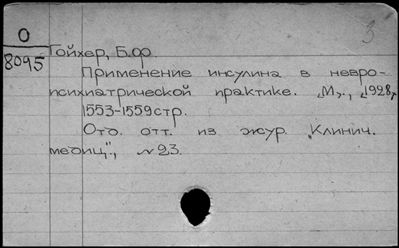 О
8095
Гойхер, Б.Ф
Применение инсулина в невро-
психиатрической практике. [М.], [1928],
1553-1559стр.
Отд. отт. из жур. "Клинич.
медиц", №23.